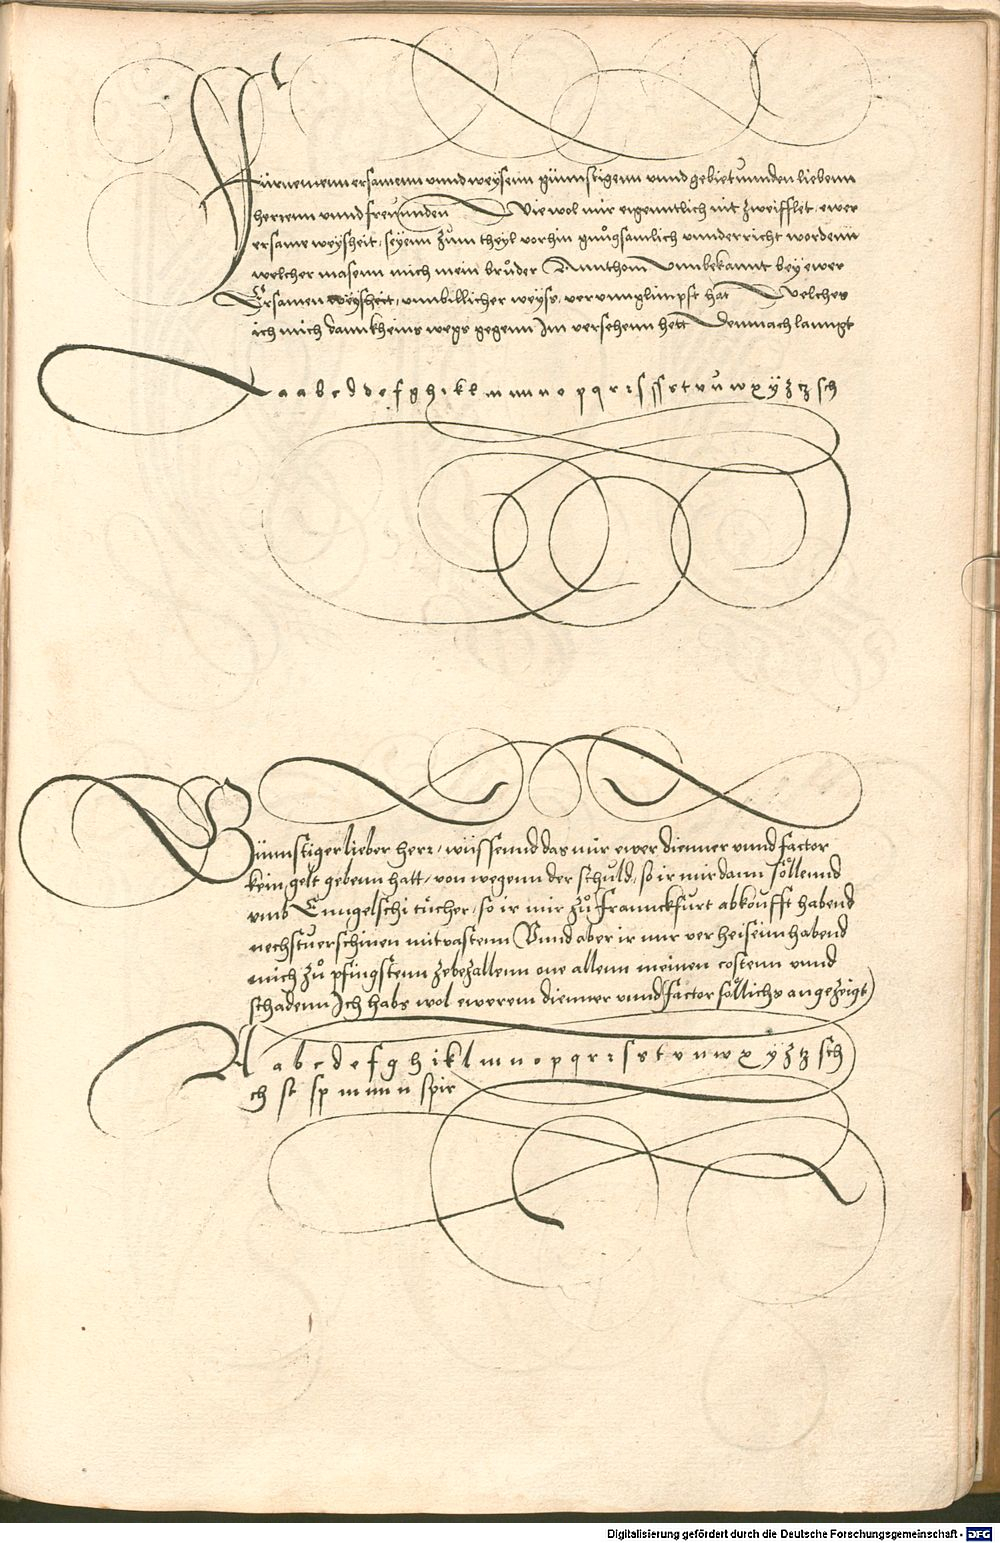 Fürnemenn ersamenn unnd weysenn günnstigenn unnd gebietunnden liebenn
herrenn unnd freunnden Wie wol mir eigenntlich nit zweifflet, ewer
ersame weysheit, seyenn zum theyl vorhin gnůgsamlich unnderricht wordenn
welcher masenn mich mein brůder Annthom Unnbekannt bey ewer
Ersamen weysheit, unnbillicher weyss, verunnglimpft hat Welches
ich mich dannkheins wegs gegenn Im versehenn hett Demnach lanngt
a a b c d d e f g h i k l m n n o p q r r s ſſ s t v ů w x ÿ z tz sch
Günnstiger lieber herr, wüssennd das mir ewer dienner unnd factor
kein gelt gebenn hatt, von wegenn der schuld, so ir mir dann söllennd
umb Enngelschi tücher, so ir mir zů Frannckfurt abkoufft habend
nechstverschinen mitvastenn Unnd aber ir mir verheisenn habend
mich zů pfingstenn zebezallenn one allenn meinen costenn unnd
schadenn Ich habs wol ewerem dienner unnd factor söllichs angezeigt
A a b c d e f g h i k l m n o p q r r s s t v u w x ÿ z tz sch
ch st sp m m n spir
Digitalisierung gefördert durch die Deutsche Forschungsgemeinschaft - DFG